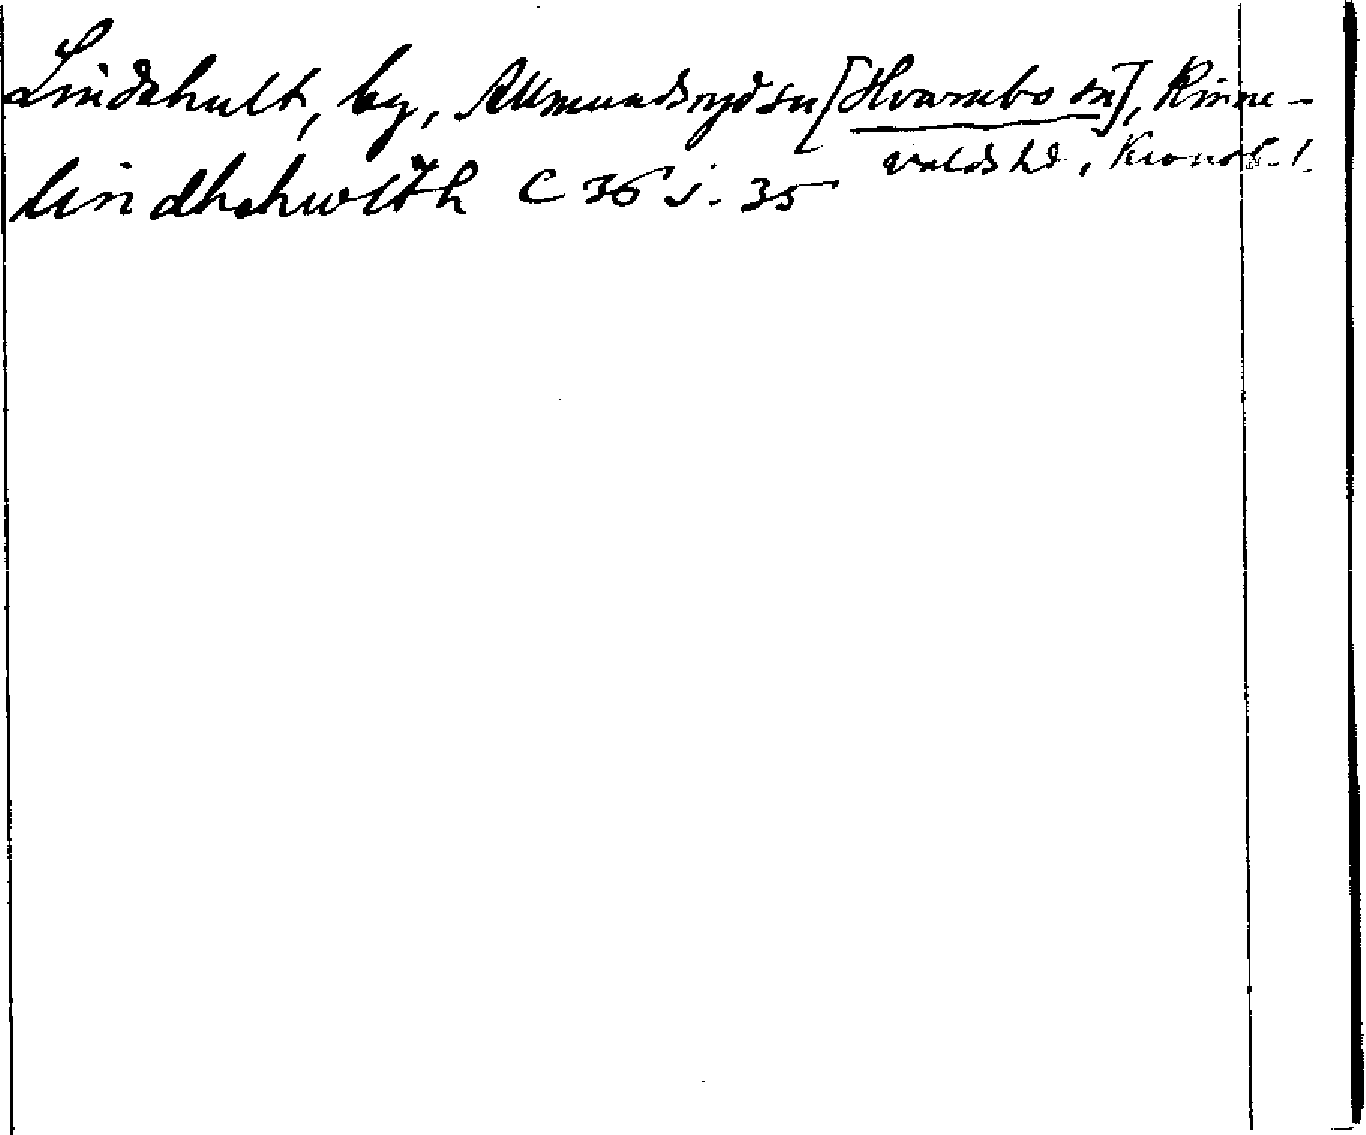 Lindshult, by, Almundsryd sn [Hvarabo sn], Kinne-
valds hd, Kronob. l.
lindhshwlth C 36 s. 35